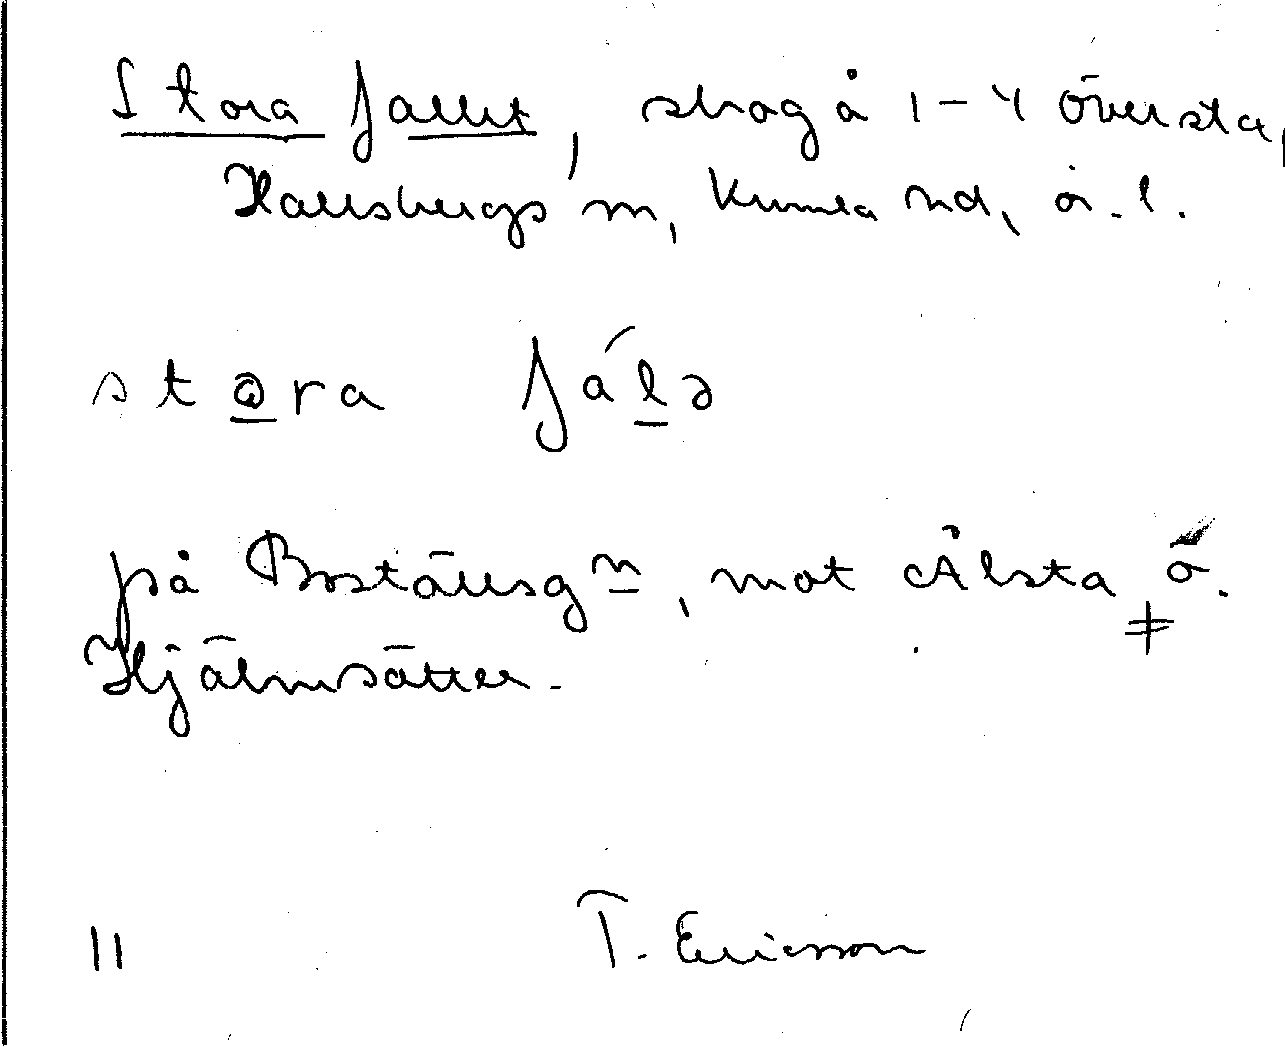 Stora fallet, skog å 1-4 Översta,
Hallsbergs m, Kumla hd, ö. l.
st@ra fálə
på Boställsg n, mot Älsta ö.
Hjälmsätter.
11 T. Ericsson